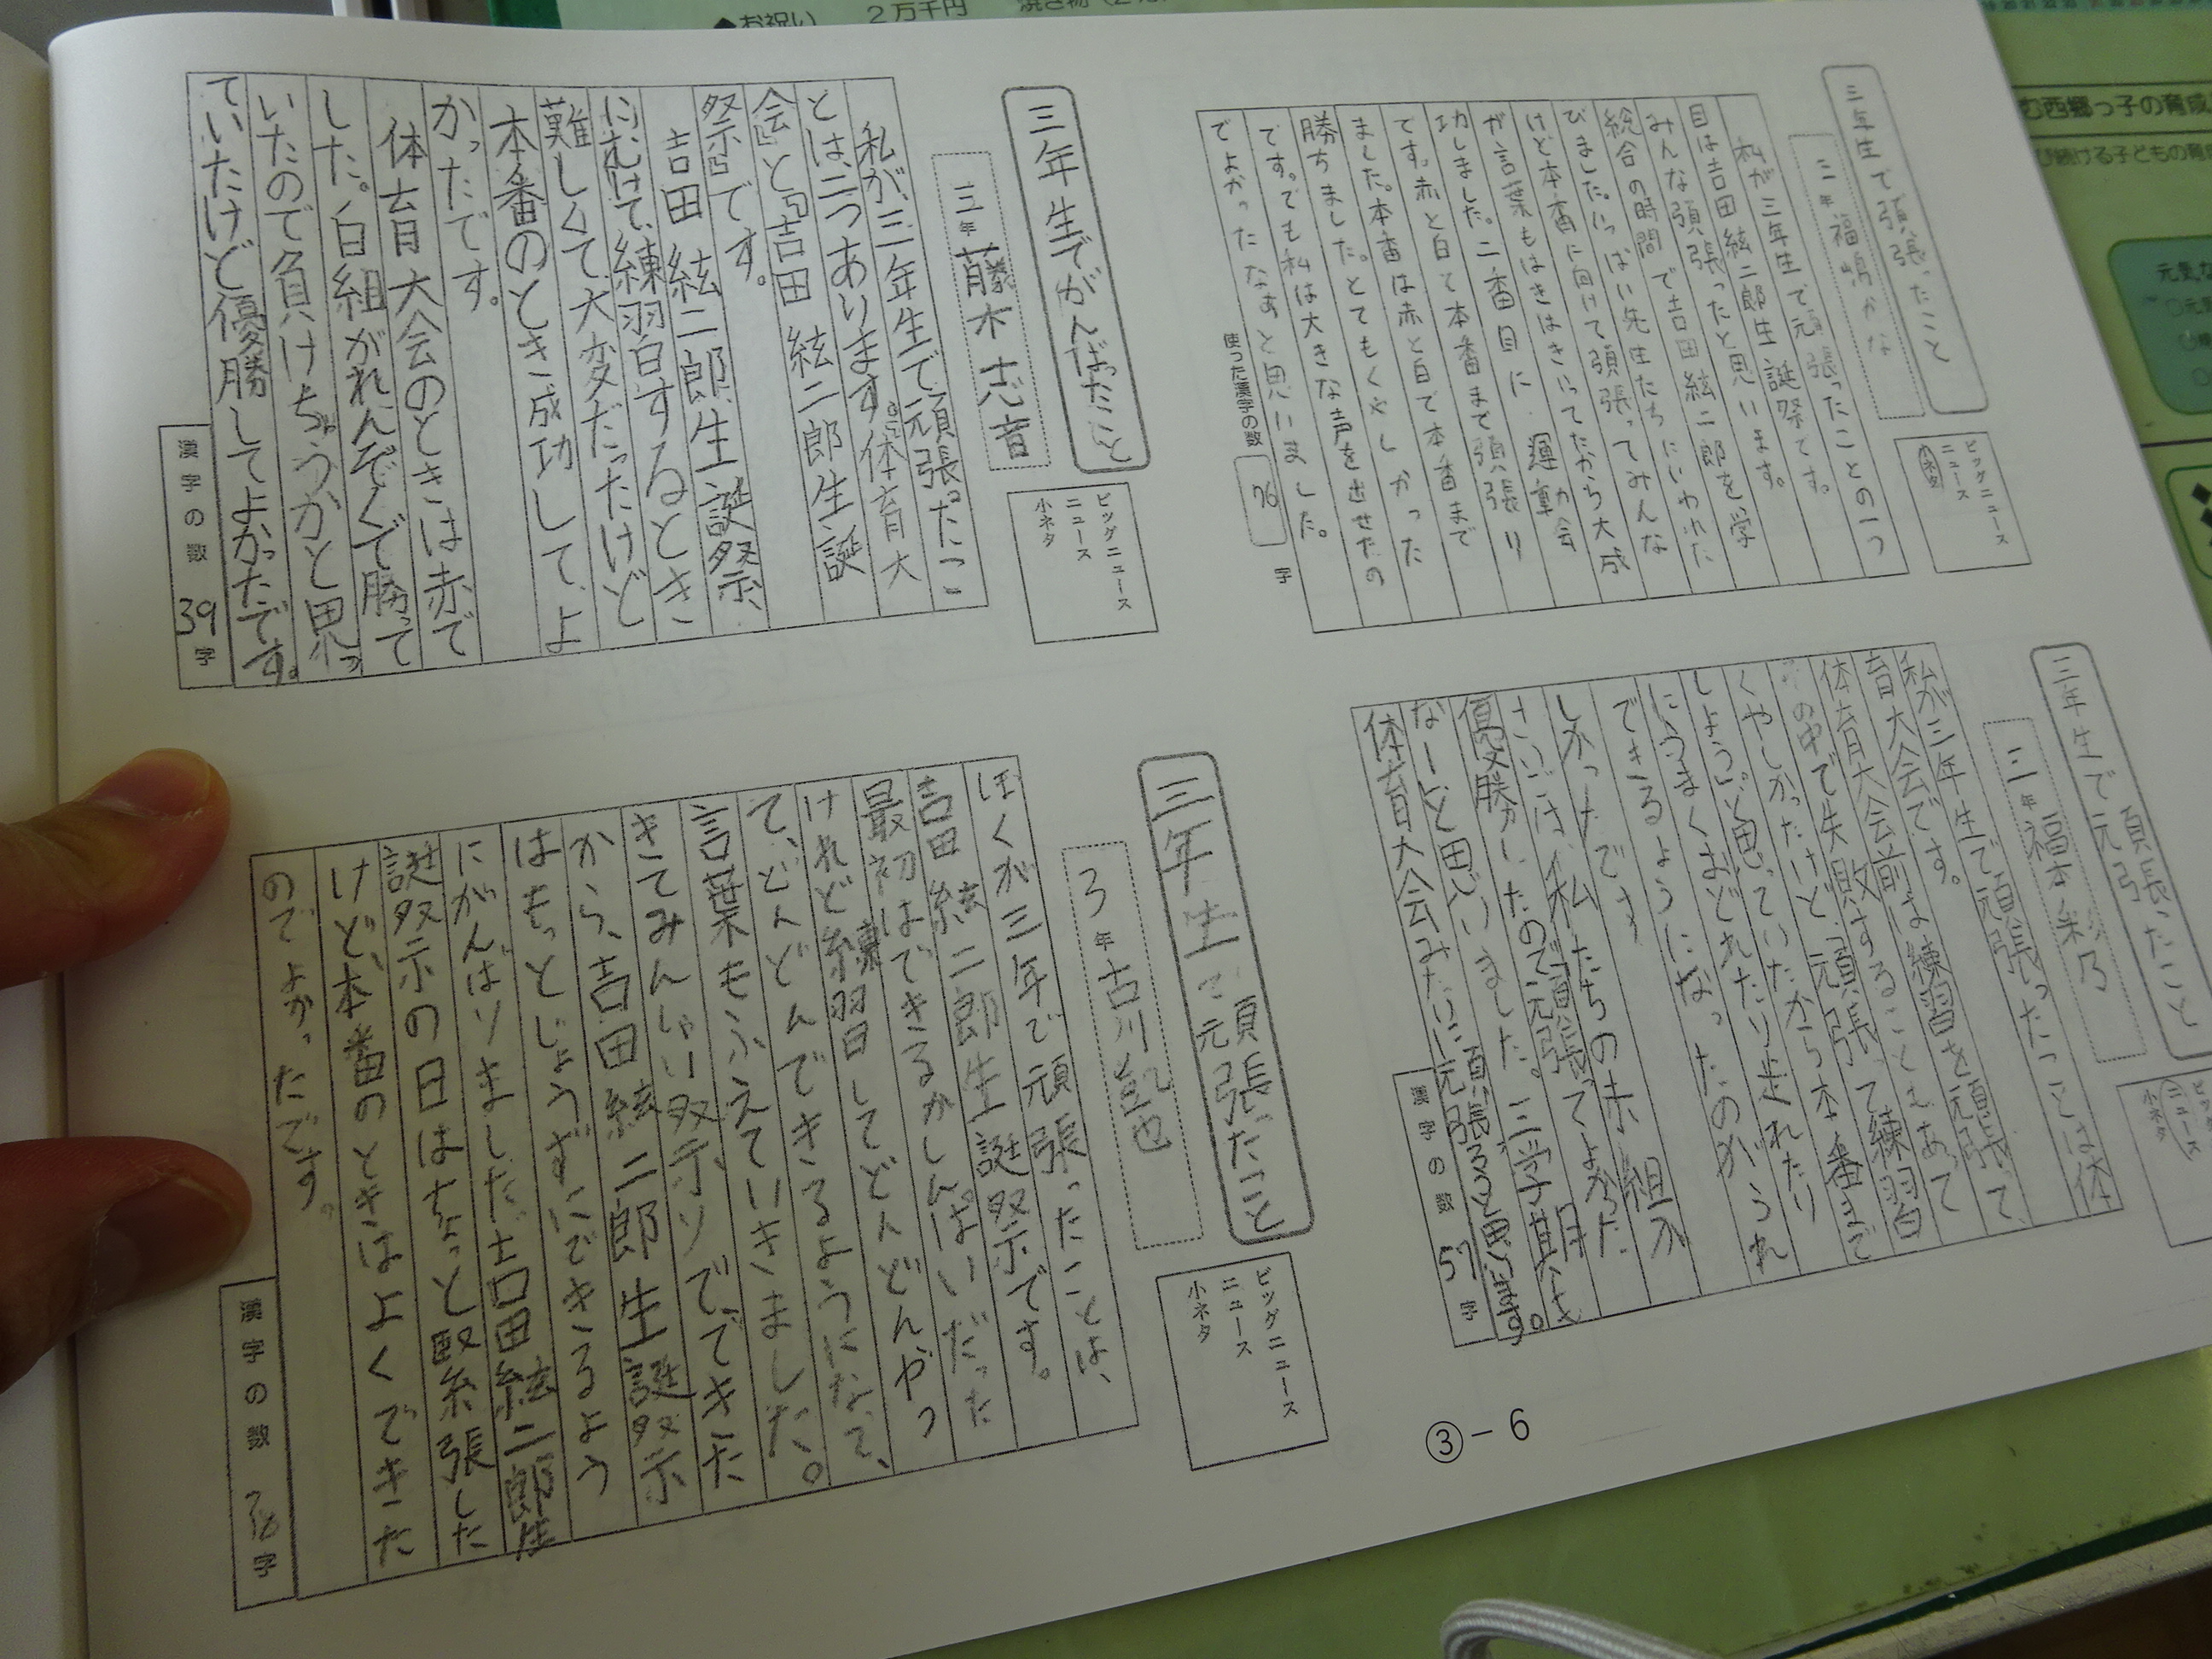 ◆お祝い 2万千円
む西郷っ子の育成
び続ける子どもの育成
元気な
三年生で頑張ったこと
三年 福嶋かな
ビッグニュース
ニュース
小ネタ
私が三年生で元張ったことの一つ
目は吉田絃二郎生誕祭です。
みんな頑張ったと思います。
総合の時間で吉田絃二郎を学
びました。いっぱい先生たちにいわれた
けど本番に向けて頑張ってみんな
が言葉もはきはきいってたから大成
功しました。二番目に、運動会
です。赤と白て本番まで頑張り
ました。本番は赤と白て本番まで
勝ちました。とてもくやしかった
です。でも私は大きな声を出せたの
でよかったなぁと思いました。
使った漢字の数 76 字
三年生で頑張ったこと
三年 福本彩乃
ニュース
小ネタ
私が三年生で頑張ったことは体
育大会です。
体育大会前は練習を頑張って、
その中で失敗することもあって
くやしかったけど、頑張って練習
しよう。と思っていたから本番まで
にうまくおどれたり走れたり
できるようになったのがうれ
しかったです
さいごは、私たちの赤組が
優勝したので頑張ってよかった
なーと思いました。
体育大会みたいに頑張ると思います。
漢字の数 57 字
三年生でがんばったこと
三年 藤木志音
ビッグニュース
ニュース
小ネタ
私が三年生で頑張ったこ
とは、二つあります。『体育大
会』と『吉田 絃二郎生誕
祭』です。
吉田 絃二郎生誕祭、
にむけて練習するとき
難しくて大変だったけど
本番のとき成功して、よ
かったです。
体育大会のときは赤で
した。白組がれんぞくで勝って
いたので負けちゃうかと思っ
ていたけど優勝してよかったです。
漢字の数 39 字
三年生で頑張たこと
3年 古川凱也
ビッグニュース
ニュース
小ネタ
ぼくが三年で頑張ったことは、
吉田絃二郎生誕祭です。
最初はできるかしんぱいだった
けれど練習してどんどんやっ
て、どんどんできるようになって、
言葉もふえていきました。
きてみんしゃい祭りででてきた
から、吉田絃二郎生誕祭
はもっとじょうずにできるよう
にがんばりました吉田絃二郎生
誕祭の日はちょっと緊張した
けど、本番のときはよくできた
のでよかったです。
漢字の数 78 字
③－6